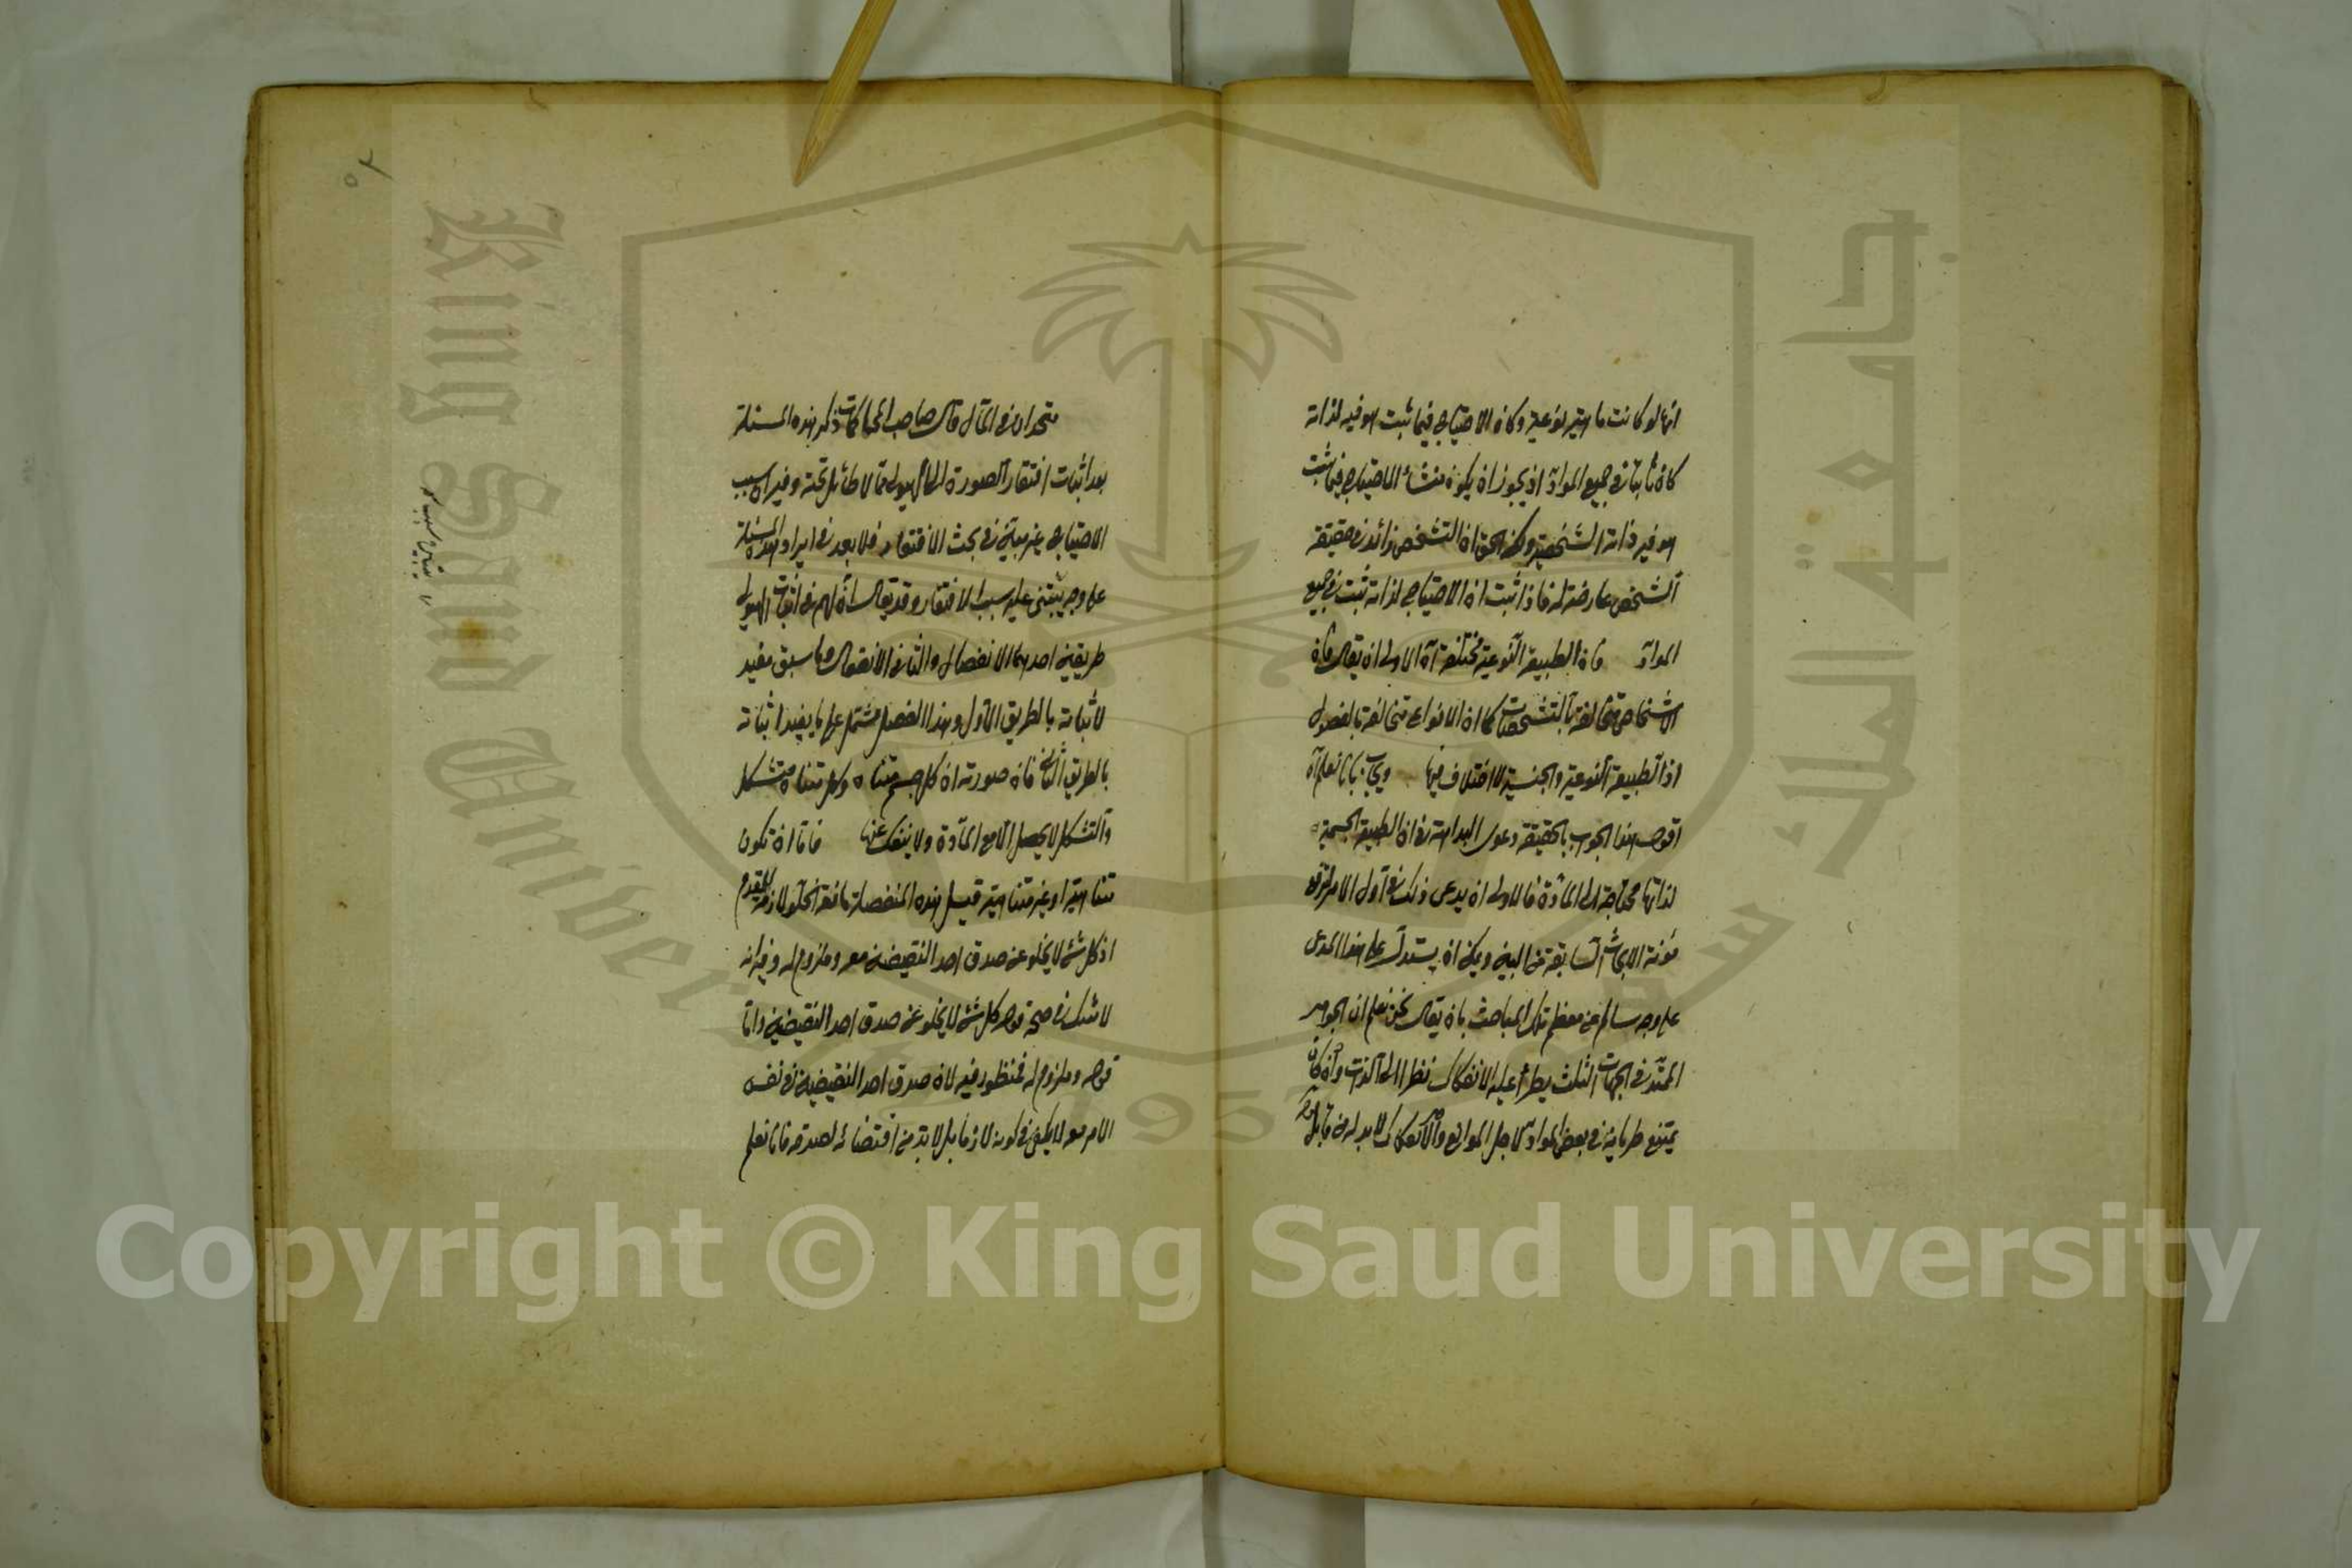 انها لو كانت ماهية نوعية وكان الاحتياج فيما ثبت هو فيه لذاته
كان ثابتا في جميع المواد اذ يجوز ان يكون منشأ الاحتياج فيما ثبت
هو فيه ذاته الشخصية ولكن الحق ان التشخص زائد في حقيقة
الشخص عارضة له فاذا ثبت ان الاحتياج لذاته ثبت في جميع
المواد فان الطبيعة النوعية مختلفة آه الاولى ان يقال فان
الاشخاص متخالفة بالتشخصات كما ان الانواع متخالفة بالفصول
اذ الطبيعة النوعية والجنسية لا اختلاف فيها ويجاب بانا نعلم آه
اقول هذا الجواب بالحقيقة دعوى البداهة في ان الطبيعة الجسمية
لذاتها محتاجة الى المادة فالاولى ان يدعى ذلك في اول الامر
مؤنة الابحاث السابقة من البين ويمكن ان يستدل على هذا المدعى
على وجه سالم عن معظم تلك المباحث بان يقال نحن نعلم ان الجوهر
الممتد في الجهات الثلث يطرأ عليه الانفكاك نظرا الى الذات وان كان
يمتنع طريانه في بعض المواد لاجل الموانع والانفكاك لا بد له من قابل
متحدان في المآل قال صاحب المحاكمات ذكر هذه المسئلة
بعد اثبات افتقار الصورة الى الهيولى مما لا طائل تحته وفيه ان سبب
الاحتياج غير مبين في بحث الافتقار فلا بعد في ايراد هذه المسئلة
على وجه يبتنى عليه سبب الافتقار وقد يقال ان لهم في اثبات الهيولى
طريقين احدهما الانفصال والثاني الانفعال وما سبق مفيد
لاثباته بالطريق الاول وهذا الفصل مشتمل على ما يفيد اثباته
بالطريق الثاني فان صورته ان كل جسم متناه وكل متناه متشكل
والتشكل لا يحصل الا مع المادة ولا ينفك عنها فاما ان تكون
متناهية او غير متناهية قيل هذه المنفصلة مانعة الخلو لازمة للمقدم
اذ كل شئ لا يخلو عن صدق احد النقيضين معه وملزوم له وفيه انه
لا شك في صحة قوله كل شئ لا يخلو عن صدق احد النقيضين واما
قوله وملزوم له فمنظور فيه لان صدق احد النقيضين في نفس
الامر معه لا يكفي في كونه لازما بل لا بد من اقتضائه لصدقه فانا نعلم
Copyright © King Saud University
King Saud University
جامعة الملك سعود
1957